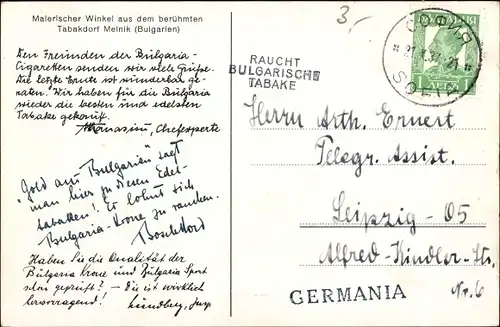 Malerischer Winkel aus dem berühmten
Tabakdorf Melnik (Bulgarien)
Den Freunden der Bulgaria-
Cigaretten senden wir viele Grüße.
Die letzte Ernte ist wunderbar ge-
raten. Wir haben für die Bulgaria
wieder die besten und edelsten
Tabake gekauft.
Athanassiu, Chefexperte
"Gold aus Bulgarien" sagt
man hier zu diesen Edel-
tabaken! Es lohnt sich
Bulgaria-Krone zu rauchen.
Haben Sie die Qualität der
Bulgaria Krone und Bulgaria Sport
schon geprüft? - die ist wirklich
hervorragend!
3,-
RAUCHT
BULGARISCHE
TABAKE
СОФИЯ
SOFIA
Herrn Arth. Ernert
Telegr. Assist.
Leipzig - O5
Alfred-Kindler-Str.
Nr. 6
GERMANIA